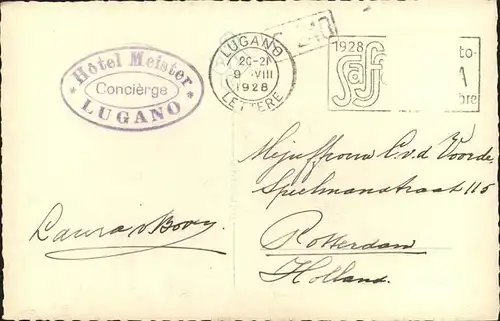 Hôtel Meister
Concièrge
LUGANO
LUGANO
20-21
9·VIII
1928
LETTERE
210
1928
Saffa
to-
A
bre
Mejuffrouw C. v. d. Voorde
Spielmanstraat 115
Rotterdam
Holland.
Laura v Boven